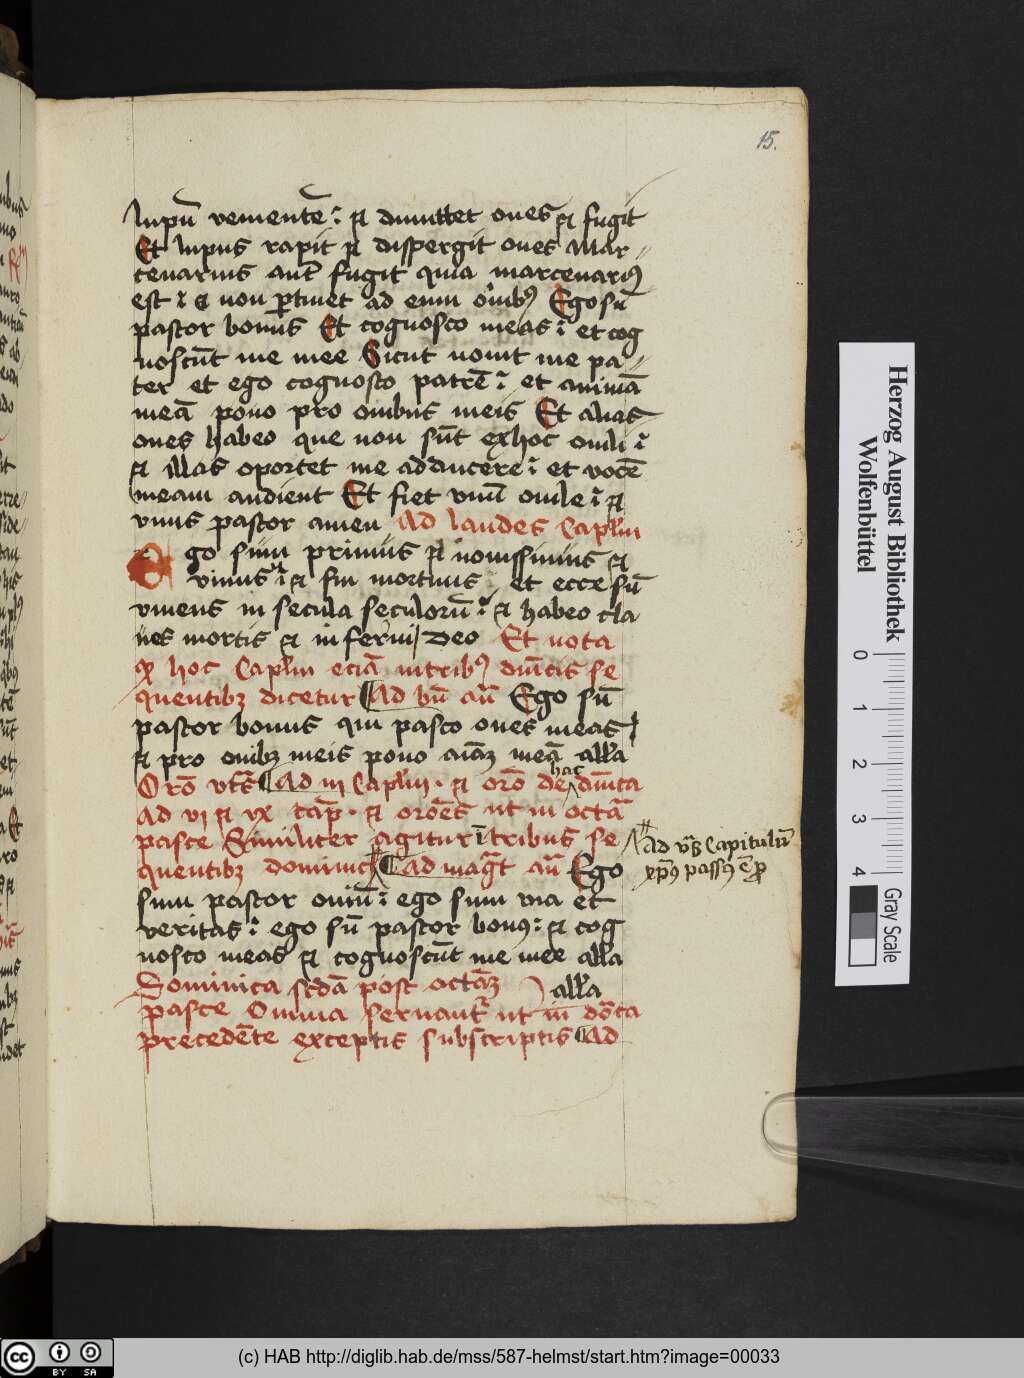 15.
lupū venientē et dimittet oues et fugit
Et lupus rapit et dispergit oues Mar-
cenarius autē fugit quia marcenariꝰ
est et non ptinet ad eum ouibꝰ Ego sū
pastor bonus Et cognosco meas et cog
noscūt me mee Sicut nouit me pa-
ter et ego cognosco patrē et animā
meā pono pro ouibus meis Et alias
oues habeo que non sūt ex hoc ouili
et illas oportet me adducere et vocē
meam audient Et fiet vnū ouile et
vnus pastor amen Ad laudes Caplm
Ego sum primus et nouissimus et
viuus et fui mortuus et ecce sū
viuens in secula seculorū et habeo cla
ues mortis et inferni Deo Et nota
ꝙ hoc Caplm eciā in tribꝰ dnicis se
quentibꝫ dicetur Ad bn̄ an̄ Ego sū
pastor bonus qui pasco oues meas
et pro ouibꝫ meis pono aīaꝫ meā alla
Orō vts̄ Ad iii Caplm et orō de hac dnica
Ad vi et ix cap et orōes ut in octā
pasce Similiter agitur ī tribus se
quentibꝫ dominic Ad maḡt an̄ Ego
Ad Capitulū
xpꝰ passꝰ ē ꝓ
sum pastor ouiū ego sum via et
veritas ego sū pastor bonꝰ et cog
nosco meas et cognoscūt me mee alla
Dominica scdā post octāꝫ alla
pasce Omnia seruant ut in dōica
precedēte exceptis subscriptis Ad
Herzog August Bibliothek
Wolfenbüttel
0 1 2 3 4
Gray Scale
cc BY SA
(c) HAB http://diglib.hab.de/mss/587-helmst/start.htm?image=00033